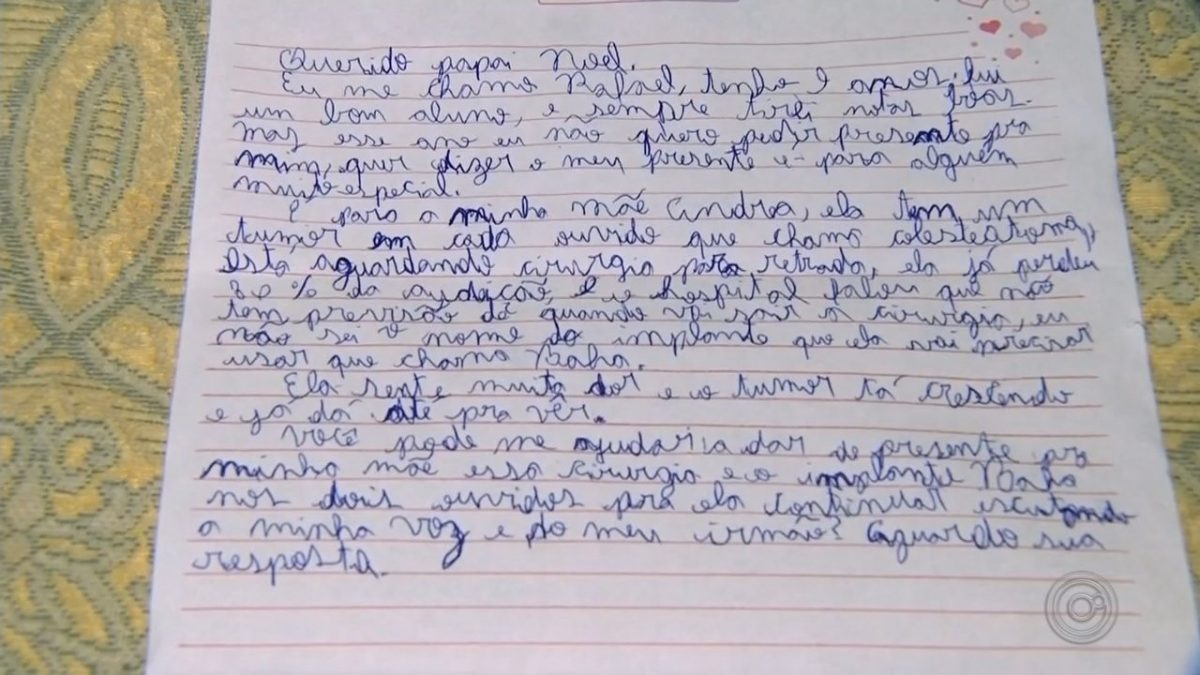 Querido papai Noel.
Eu me chamo Rafael, tenho 9 anos, fui
um bom aluno, e sempre tirei notas boas.
mas esse ano eu não quero pedir presente pra
mim, quer dizer o meu presente é para alguém
muito especial.
É para a minha mãe Andrea, ela tem um
tumor em cada ouvido que chama colesteatoma,
está aguardando cirurgia para retirada, ela já perdeu
80% da audição, e o hospital falou que não
tem previsão de quando vai sair a cirurgia, eu
não sei o nome do implante que ela vai precisar
usar que chama Baha.
Ela sente muita dor e o tumor tá crescendo
e já dá até pra vêr.
Você pode me ajudar a dar de presente pra
minha mãe essa cirurgia e o implante Baha
nos dois ouvidos para ela continuar escutando
a minha voz e do meu irmão? Aguardo sua
resposta.